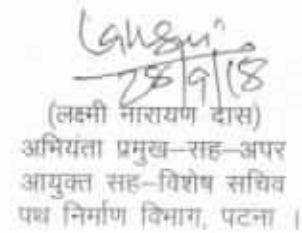 28/9/18
(लक्ष्मी नारायण दास)
अभियंता प्रमुख–सह–अपर
आयुक्त सह–विशेष सचिव
पथ निर्माण विभाग, पटना ।